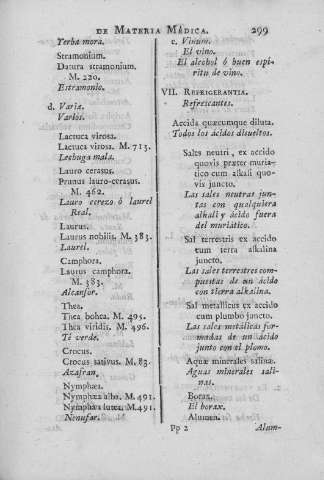 DE MATERIA MÉDICA. 299
Yerba mora.
Stramonium.
Datura stramonium.
M. 220.
Estramonio.
d. Variæ.
Varios.
Lactuca virosa.
Lactuca virosa. M. 713.
Lechuga mala.
Lauro cerasus.
Prunus lauro-cerasus.
M. 462.
Lauro cerezo ó laurel
Real.
Laurus.
Laurus nobilis. M. 383.
Laurel.
Camphora.
Laurus camphora.
M. 383.
Alcanfor.
Thea.
Thea bohea. M. 495.
Thea viridis. M. 496.
Té verde.
Crocus.
Crocus sativus. M. 83.
Azafran.
Nymphæa.
Nymphæa alba. M. 491.
Nymphæa lutea. M. 491.
Nenufar.
e. Vinum.
El vino.
El alcohol ó buen espi-
ritu de vino.
VII. REFRIGERANTIA.
Refrescantes.
Accida quæcumque diluta.
Todos los ácidos disueltos.
Sales neutri, ex accido
quovis præter muria-
tico cum alkali quo-
vis juncto.
Las sales neutras jun-
tas con qualquiera
alkali y ácido fuera
del muriático.
Sal terrestris ex accido
cum terra alkalina
juncto.
Las sales terrestres com-
puestas de un ácido
con tierra alkalina.
Sal metallicus ex accido
cum plumbo juncto.
Las sales metálicas for-
madas de un ácido
junto con el plomo.
Aquæ minerales salinæ.
Aguas minerales sali-
nas.
Borax.
El borax.
Alumen.
Pp 2 Alum-